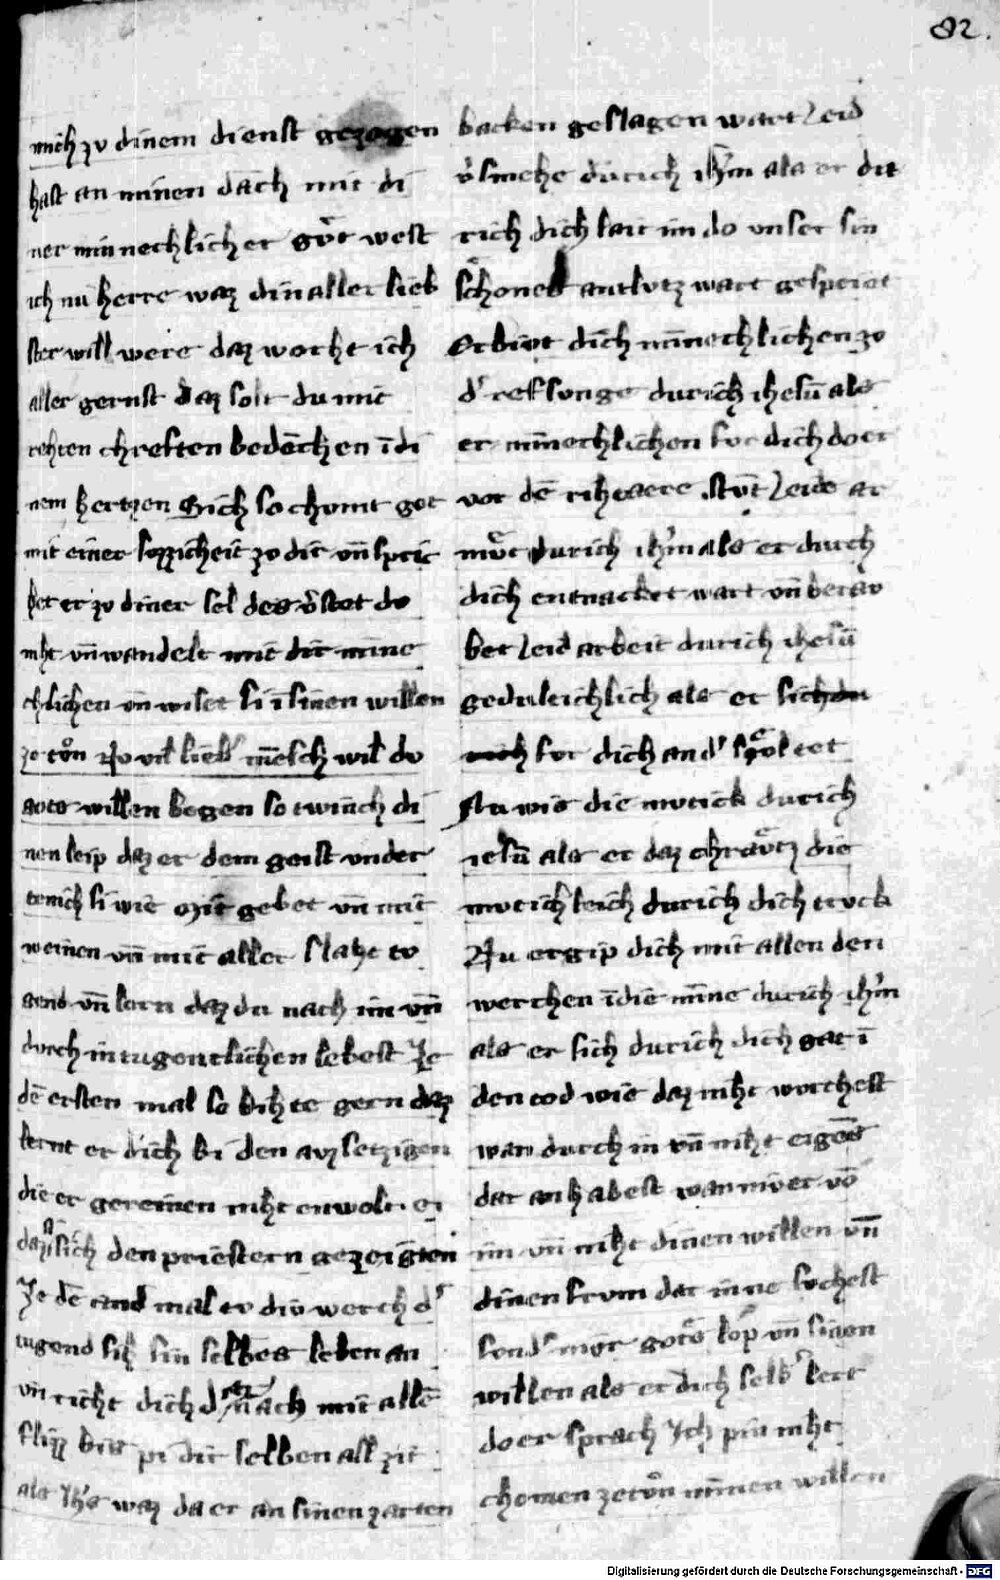 82.
mich zv dinem dienst gezogen
hast an minen dach mit di
ner minnechlicher gvͦt west
ich nu herre waz din aller lieb
ster will were daz worht ich
aller gernst daz solt du mit
rehten chreften bedæchen ī di
nem hertzen Sich so chumt got
mit einer sozzicheit zo dir vn̄ spric
het er zv diner sel des vͦstet do
niht vn̄ wandelt mit dir mine
chlichen vn̄ wiset si ī sinen willen
ze tōn Nv vil lieb mēsch wil du
gots willen begen so twinch di
nen leip daz er dem geist vnder
tenich si wie Mit gebet vn̄ mit
weinen vn̄ mit aller slaht tv
gend vn̄ lern daz du nach im vn̄
durch in tugentlichen lebest Ze
dē ersten mal so bihte gern daz
lernt er dich bi den avzsetzigen
die er gereinen niht enwolt er
daz si sich den priestern gezeigten
Ze dē and mal tv div werch d'
tugend sih sin selbes leben an
vn̄ riht dich dar nach mit allē
flizz biss pi dir selben all zit
als Ihs waz da er an sinen zarten
backen geslagen wart Leid
v'smehe durich ihm als er dit
rich dich lait im do unser sin
schones antlvtz wart gespeiet
Erbivt dich minnechlichen zo
d' refsunge durich ihesū als
er minnechlichen for dich do er
vor dē rihtaere stvͦnt Leide ar
mvͦt durich ihm als er durch
dich entnacket wart vn̄ berav
bet Leid arbeit durich ihesū
gedulteichlich als er sich
for dich and' sol tet
Nu wie die mvtick durich
iesū als er daz chravtz die
mvtichleich durich dich truck
Nu ergip dich mit allen den
werchen ī die mīne durich ihm
als er sich durich dich gar ī
den tod wie daz niht worchest
wan durch in vn̄ niht eigēs
dar an habest wan niwer vō
im vn̄ niht dinen willen vn̄
dinen frvm dar inne sochest
sond' mer gots lop vn̄ sinen
willen als er dich selb' lert
do er sprach Ich pin niht
chomen ze tvͦn minen willen
Digitalisierung gefördert durch die Deutsche Forschungsgemeinschaft - DFG